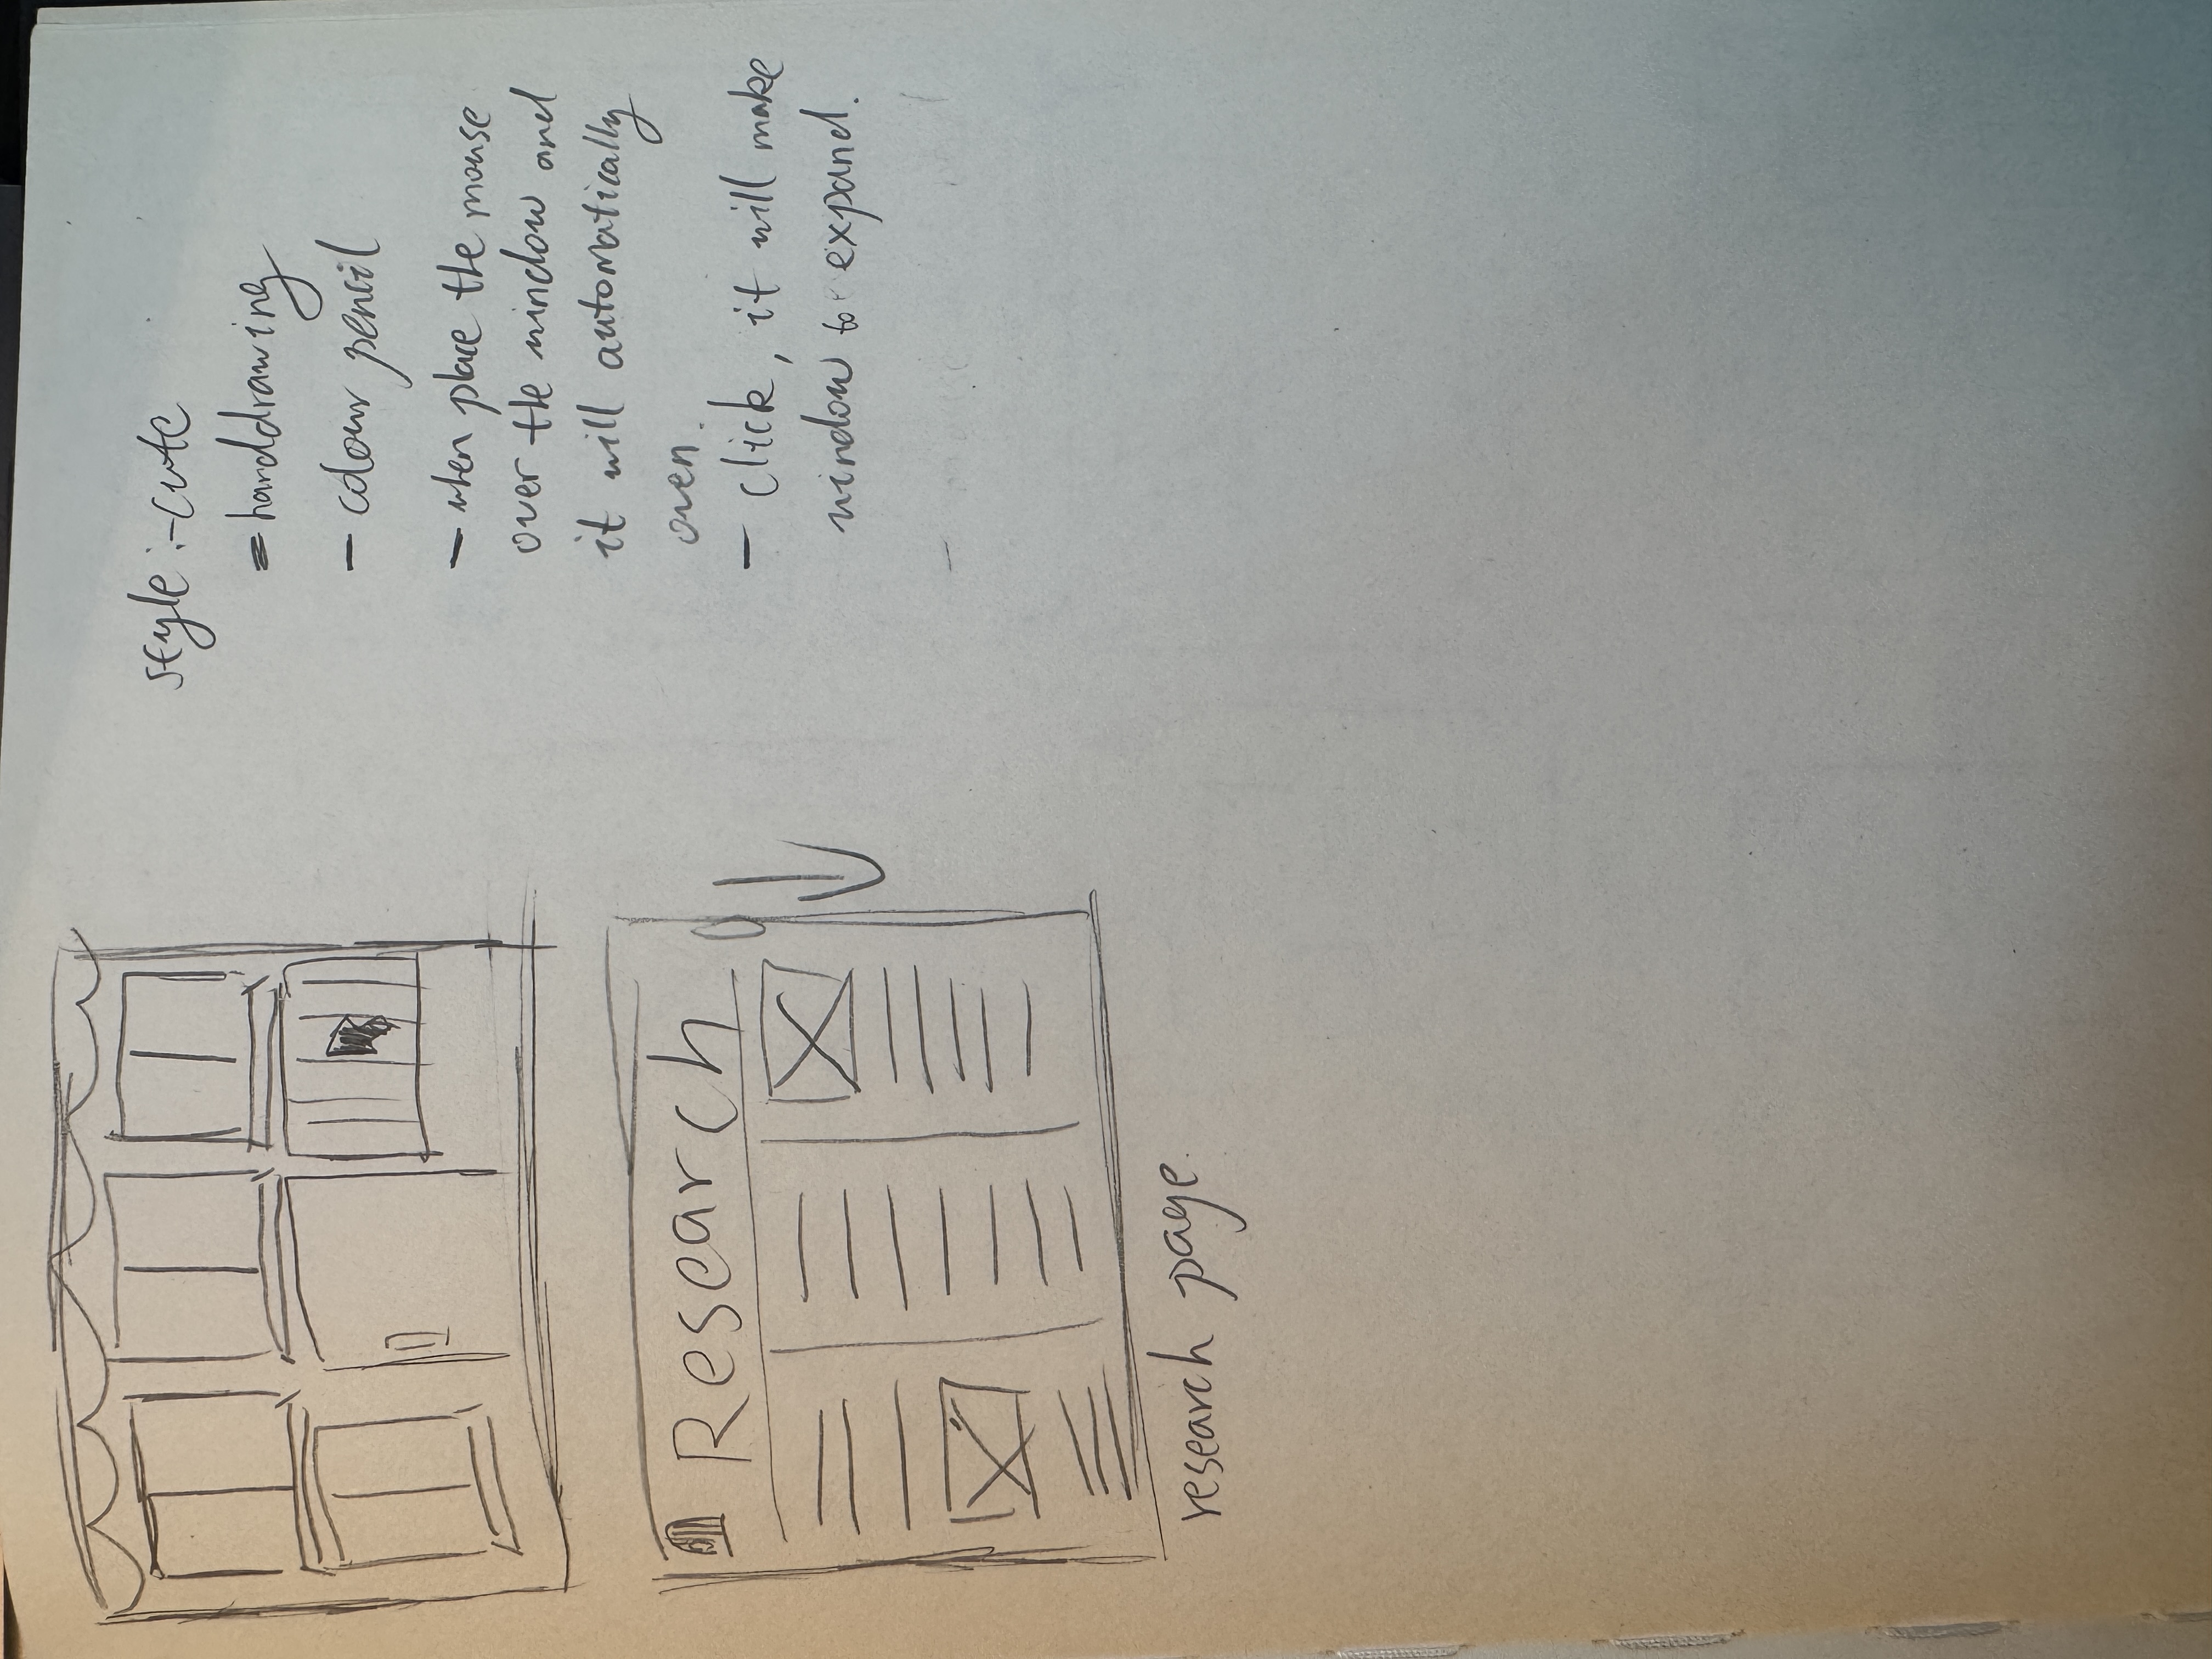 style :- cute
= handdrawing
- colour pencil
- when place the mouse
over the window and
it will automatically
open.
- click, it will make
window to expand.
Research
research page.